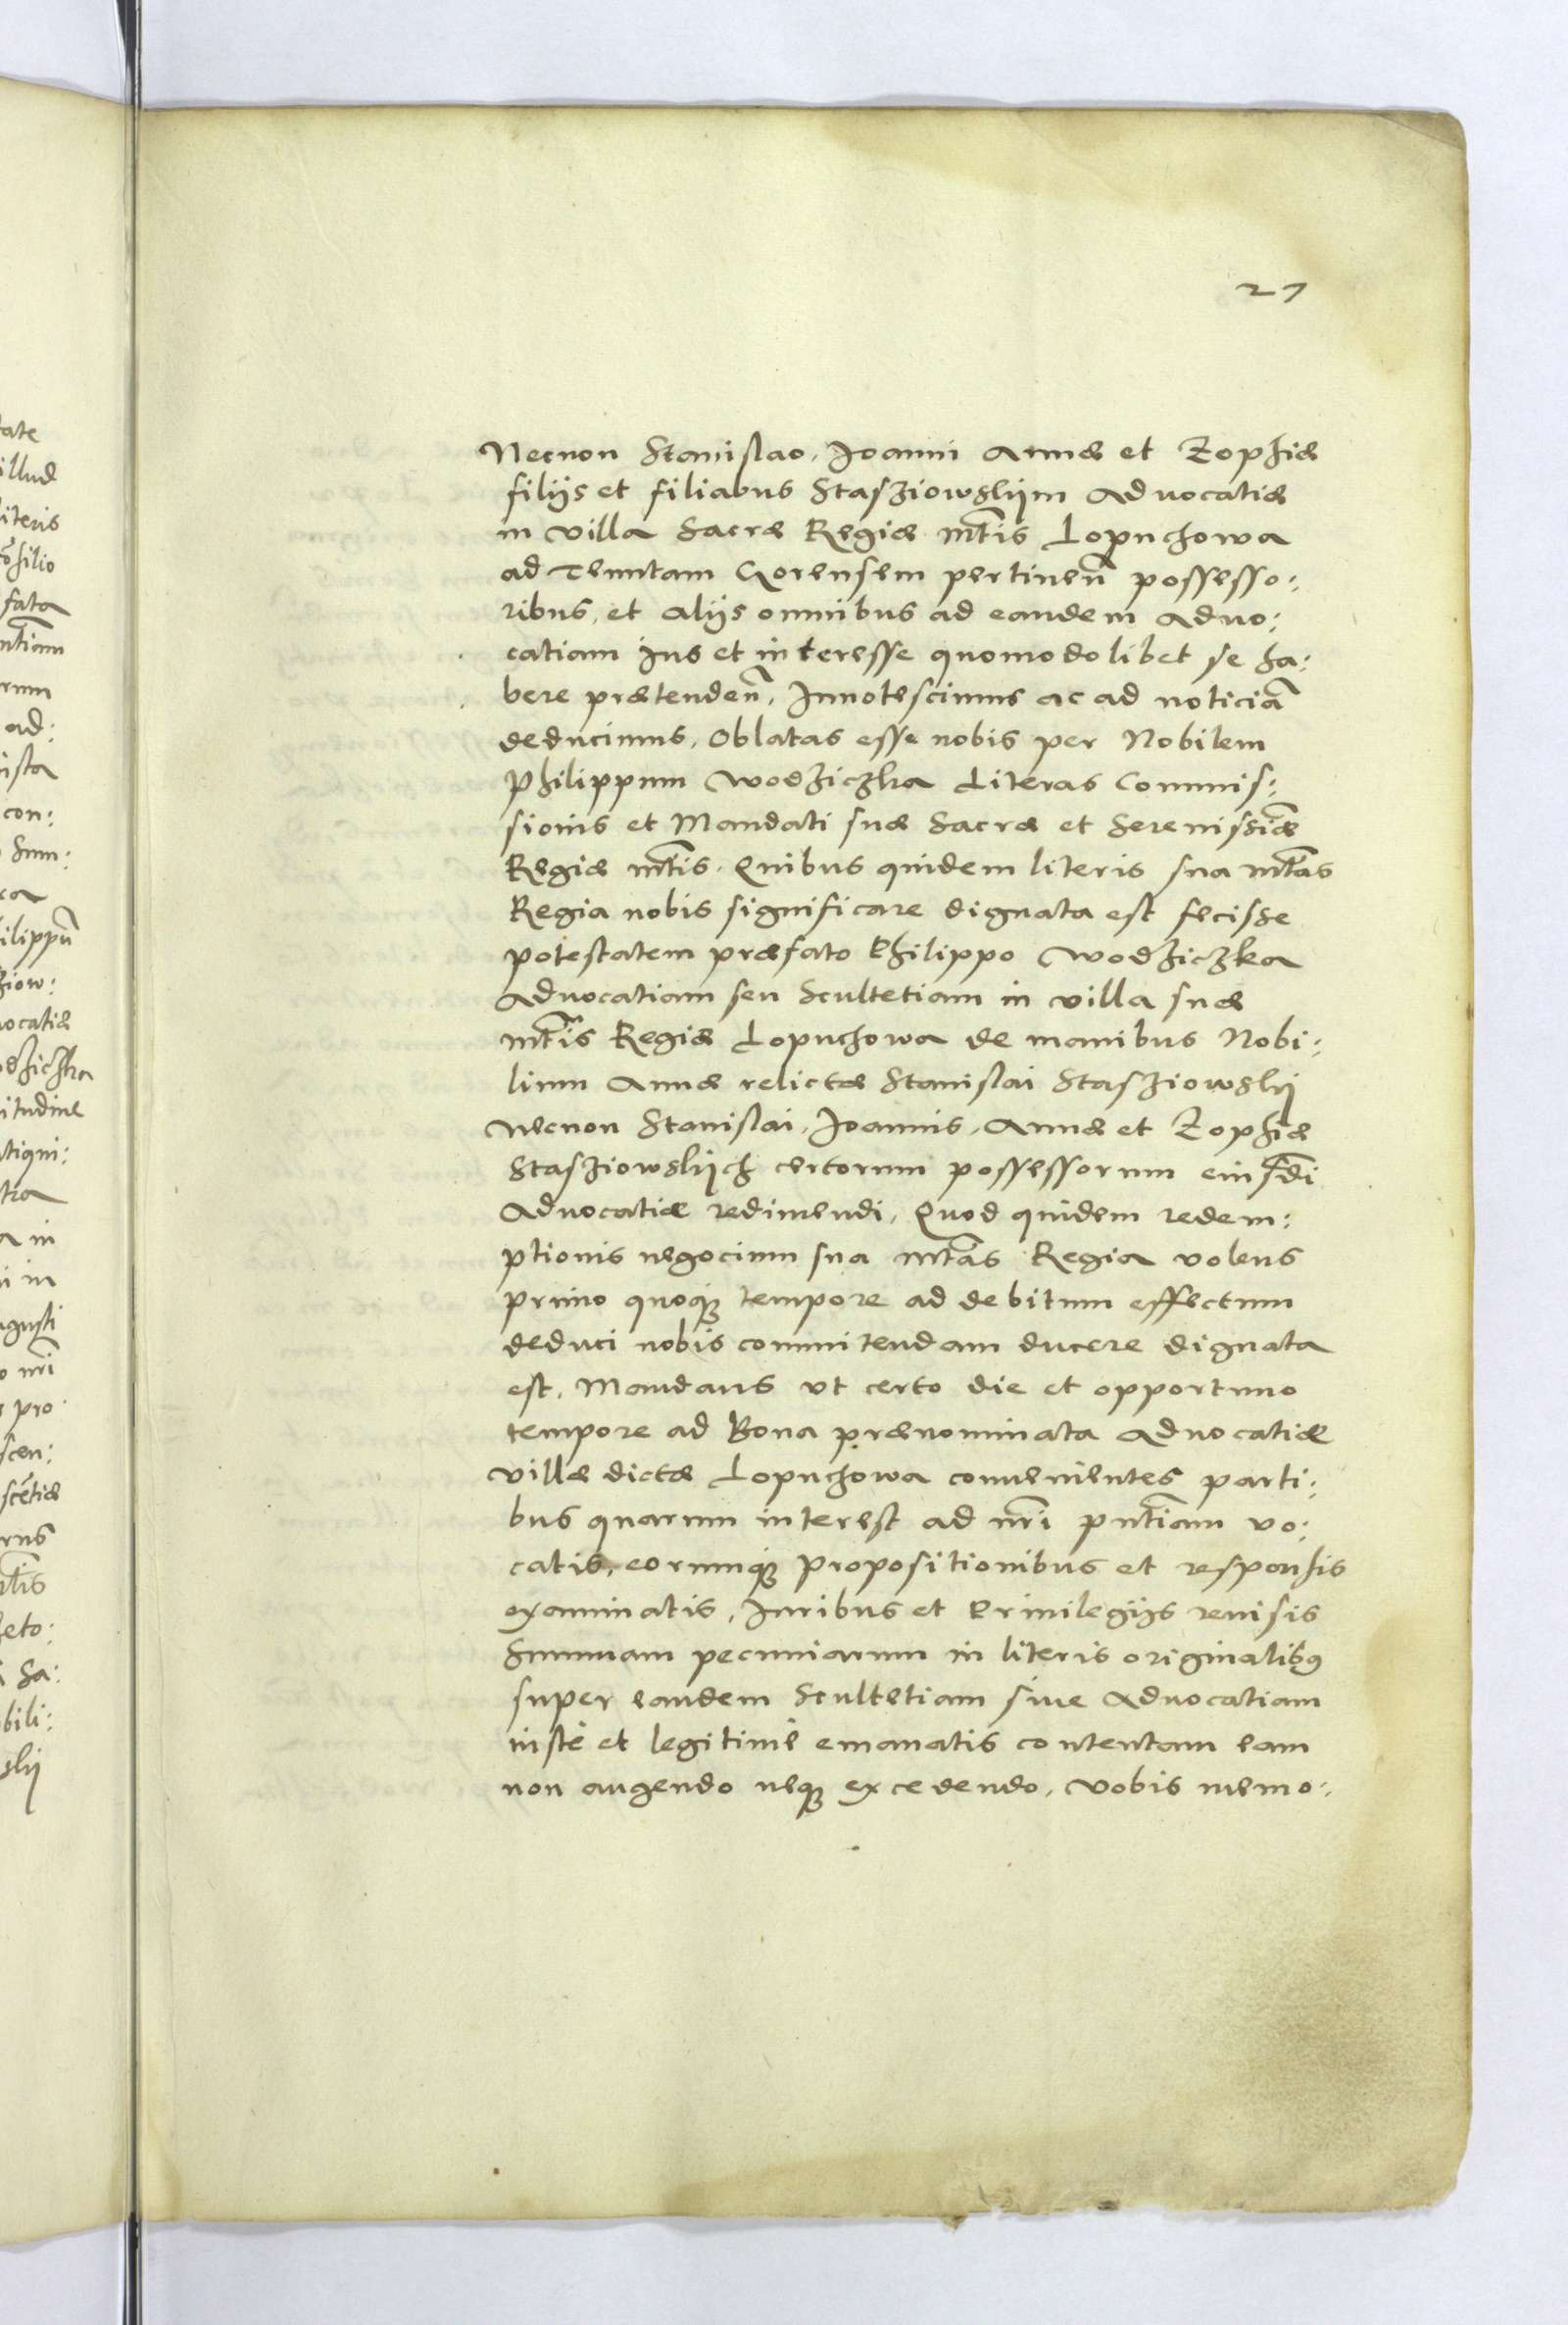 27
Necnon Stanislao, Joanni Annæ et Zophiæ
filijs et filiabus Staszÿowskijm Advocatiæ
in villa Sacræ Regiæ mṫis Lopuchowa
ad Tenutam Gorensem pertineñ possesso:
ribus, et alijs omnibus ad eandem Advo:
catiam ius et interesse quomodolibet se ha:
bere prætendeñ, Innotescimus ac ad noticiã
deducimus, Oblatas esse nobis per Nobilem
Philippum Wodziczka Literas Commis:
sionis et Mandati suæ Sacræ et Serenissiæ̃
Regiæ mṫis. Quibus quidem literis sua mṫas
Regia nobis significare dignata est fecisse
potestatem præfato Philippo Wodziczka
Advocatiam seu Scultetiam in villa suæ
mṫis Regiæ Lopuchowa de manibus Nobi:
lium Annæ relictæ Stanislai Stasziowskij
Necnon Stanislai, Joannis, Annæ et Zophiæ
Stasziowskijch certorum possessorum eiusd̃i
Advocatiæ redimendi, Quod quidem redem:
ptionis negocium sua mṫas Regia volens
primo quoqȝ tempore ad debitum effectum
deduci nobis commitendam ducere dignata
est, Mandans ut certo die et opportuno
tempore ad Bona prænominata Advocatiæ
villæ dictæ Lopuchowa convenientes parti:
bus quarum interest ad nr̃i pñtiam vo:
catis, eorumqȝ propositionibus et responsis
examinatis, Iuribus et Privilegijs revisis
Summam pecuniarum in literis originalibꝰ
super eandem Scultetiam sive Advocatiam
iustè et legitimè emanatis contentam eam
non augendo neqȝ excedendo, vobis memo: